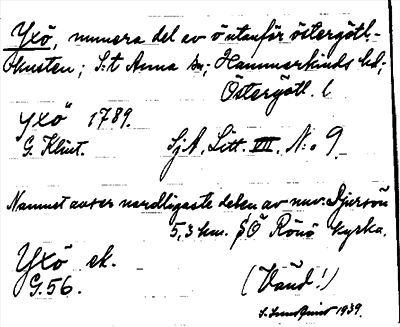 Yxö, numera del av ö utanför östergötl.-
kusten; S:t Anna sn; Hammarkinds hd;
Östergötl. l
Yxö 1789.
G. Klint. SjA, Litt. VIII. N:o 9.
Namnet avser nordligaste delen av nuv. Djursön
5,3 km. SÖ Rönö kyrka.
Yxö ek.
G.56. (Vänd!)
1939.